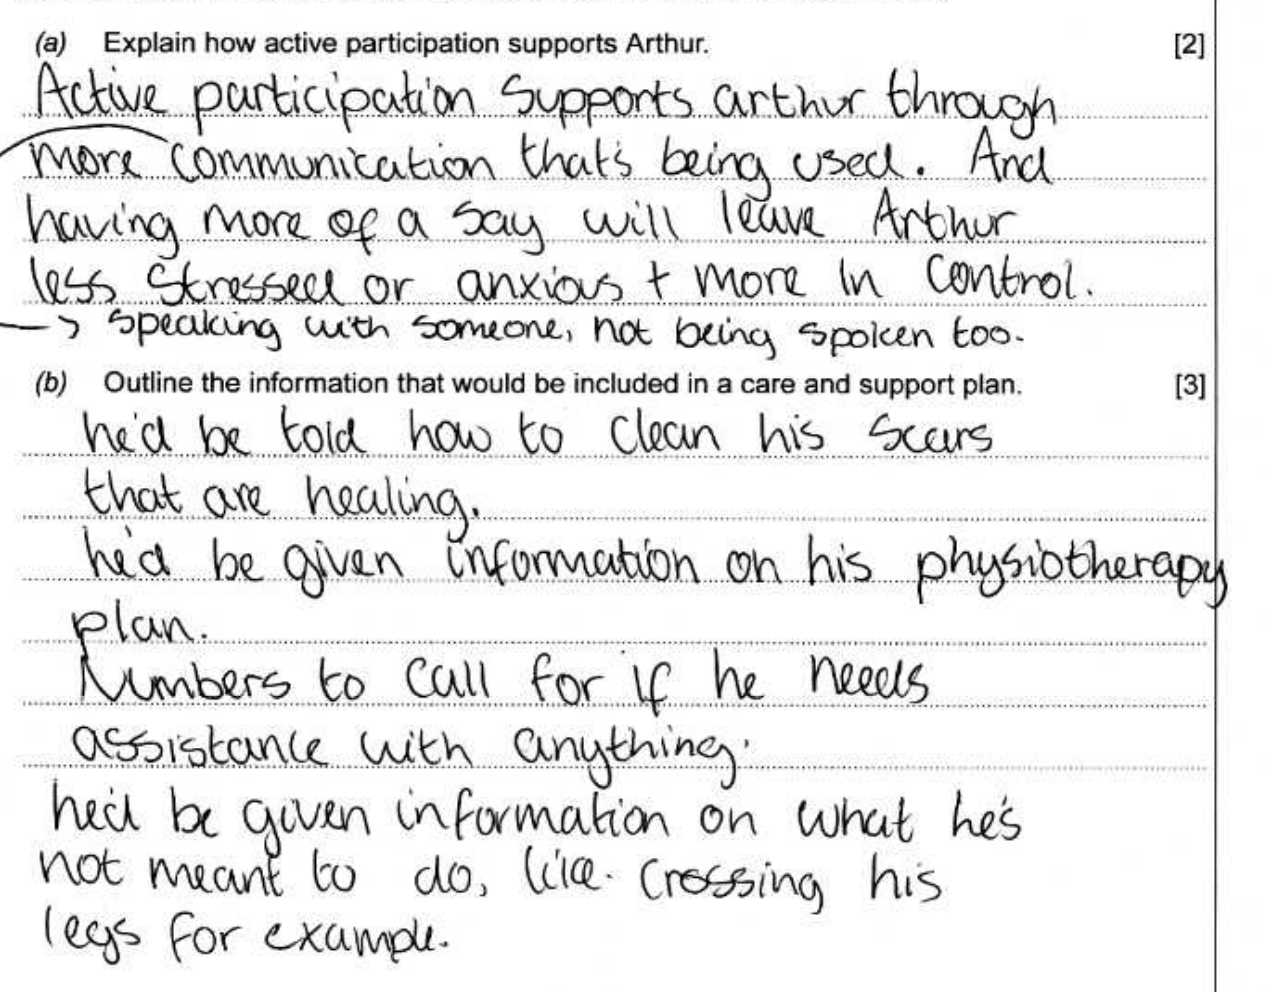 (a) Explain how active participation supports Arthur. [2]
Active participation supports arthur through
more communication that's being used. And
having more of a say will leave Arthur
less stressed or anxious + more in control.
→ speaking with someone, not being spoken too.
(b) Outline the information that would be included in a care and support plan. [3]
he'd be told how to clean his scars
that are healing.
he'd be given information on his physiotherapy
plan.
Numbers to call for if he needs
assistance with anything.
he'd be given information on what he's
not meant to do, like. crossing his
legs for example.